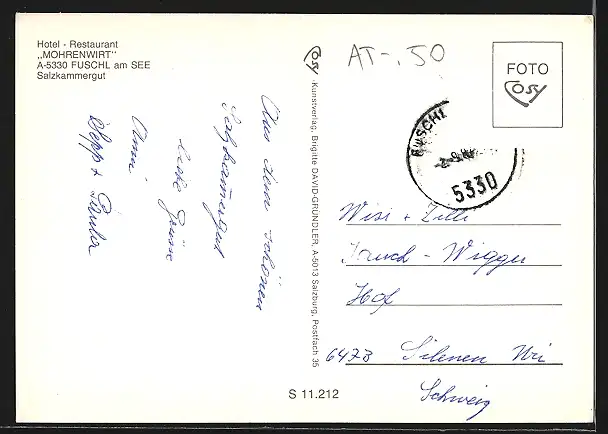 Hotel - Restaurant
„MOHRENWIRT"
A-5330 FUSCHL am SEE
Salzkammergut
Aus dem schönen
Salzkammergut
liebe Grüsse
Anni
Sepp + Paula
Cosy -Kunstverlag, Brigitte DAVID-GRÜNDLER, A-5013 Salzburg, Postfach 35
AT-.50
FOTO
Cosy
FUSCHL
5330
Wisi + Zilli
- Wigger
Hof
6473 Silenen Uri
Schweiz
S 11.212